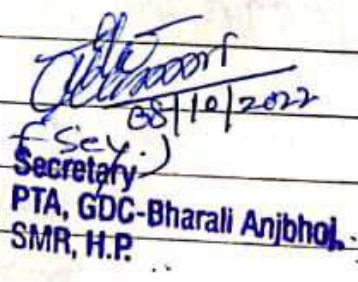 08/10/2022
(Secy.)
Secretary
PTA, GDC-Bharali Anjbhoj,
SMR, H.P.